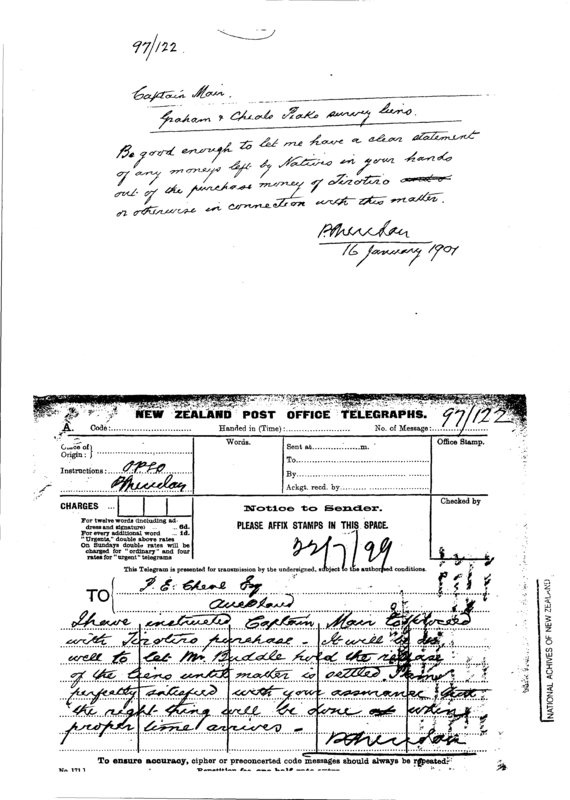 97/122
Captain Mair.
Graham & Cheals survey liens.
Be good enough to let me have a clear statement
of any moneys left by Natives in your hands
out of the purchase money of Tirotiro
or otherwise in connection with this matter.
P Sheridan
16 January 1901
NEW ZEALAND POST OFFICE TELEGRAPHS. 97/122
A. Code: Handed in (Time): No. of Message:
Office of Origin: Words. Sent at m. Office Stamp.
To
Instructions: OPSO By
P Sheridan Ackgt. recd. by
CHARGES Notice to Sender. Checked by
For twelve words (including ad-
dress and signature) ... 6d.
For every additional word ... 1d.
"Urgents," double above rates
On Sundays double rates will be
charged for "ordinary" and four
rates for "urgent" telegrams
PLEASE AFFIX STAMPS IN THIS SPACE.
22/7/99
This Telegram is presented for transmission by the undersigned, subject to the authorised conditions.
TO P. E. Cheal Esq
Auckland
I have instructed Captain Mair to proceed
with Tirotiro purchase. It will be
well to let Mr. Buddle hold the release
of the liens until matter is settled I am
perfectly satisfied with your assurance that
the right thing will be done when
proper time arrives.
P Sheridan
To ensure accuracy, cipher or preconcerted code messages should always be repeated.
NATIONAL ARCHIVES OF NEW ZEALAND